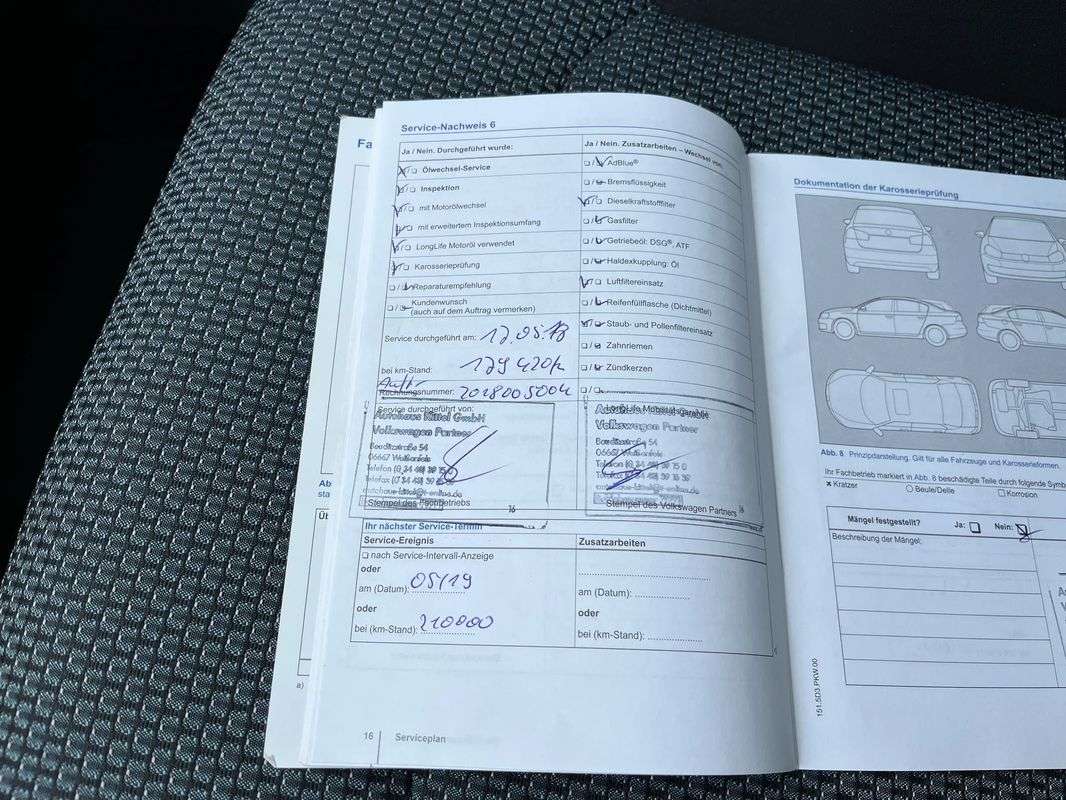 Service-Nachweis 6
Ja / Nein. Durchgeführt wurde:
Ölwechsel-Service
Inspektion
mit Motorölwechsel
mit erweitertem Inspektionsumfang
LongLife Motoröl verwendet
Karosserieprüfung
Reparaturempfehlung
Kundenwunsch
(auch auf dem Auftrag vermerken)
Service durchgeführt am: 17.05.18
bei km-Stand:
Rechnungsnummer: 2018005004
Service durchgeführt von:
Autohaus Kittel GmbH
Volkswagen Partner
Stempel des Fachbetriebs
Ja / Nein. Zusatzarbeiten – Wechsel von:
AdBlue®
Bremsflüssigkeit
Dieselkraftstofffilter
Gasfilter
Getriebeöl: DSG®, ATF
Haldexkupplung: Öl
Luftfiltereinsatz
Reifenfüllflasche (Dichtmittel)
Staub- und Pollenfiltereinsatz
Zahnriemen
Zündkerzen
LongLife Mobilitätsgarantie
Volkswagen Partner
Stempel des Volkswagen Partners
Ihr nächster Service-Termin
Service-Ereignis
nach Service-Intervall-Anzeige
oder
am (Datum): 05/19
oder
bei (km-Stand): 210000
Zusatzarbeiten
am (Datum):
oder
bei (km-Stand):
16 Serviceplan
Fa
Ab
sta
a)
Dokumentation der Karosserieprüfung
Abb. 8 Prinzipdarstellung. Gilt für alle Fahrzeuge und Karosserieformen.
Ihr Fachbetrieb markiert in Abb. 8 beschädigte Teile durch folgende Symb
× Kratzer ○ Beule/Delle □ Korrosion
Mängel festgestellt? Ja: Nein:
Beschreibung der Mängel:
151.5D3.PKW.00